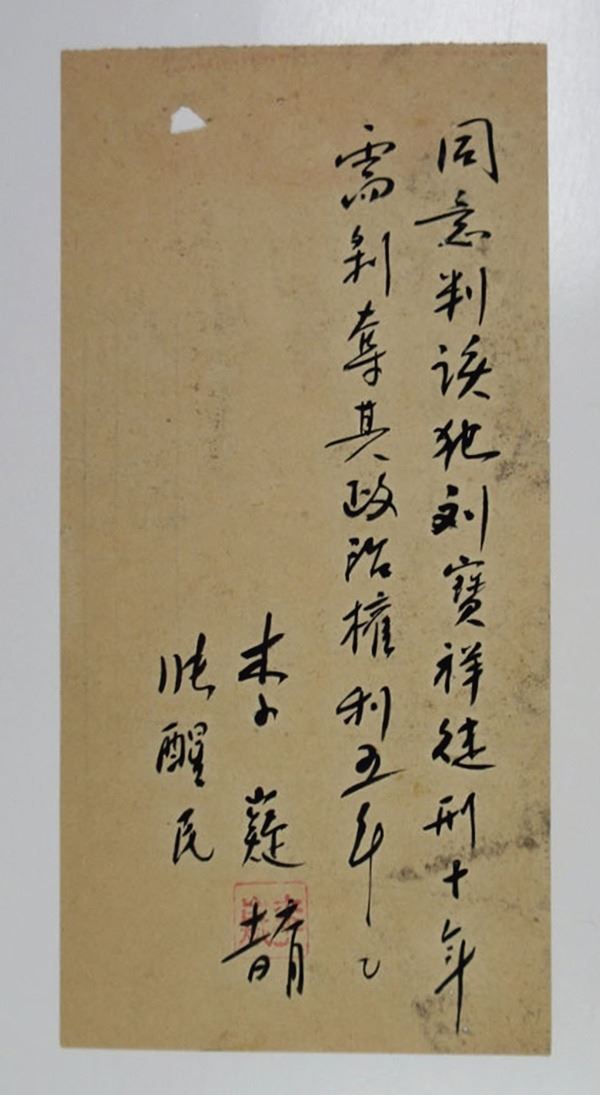 同意判该犯刘寶祥徒刑十年
需剥奪其政治權利五年。
李嶷
张醒民